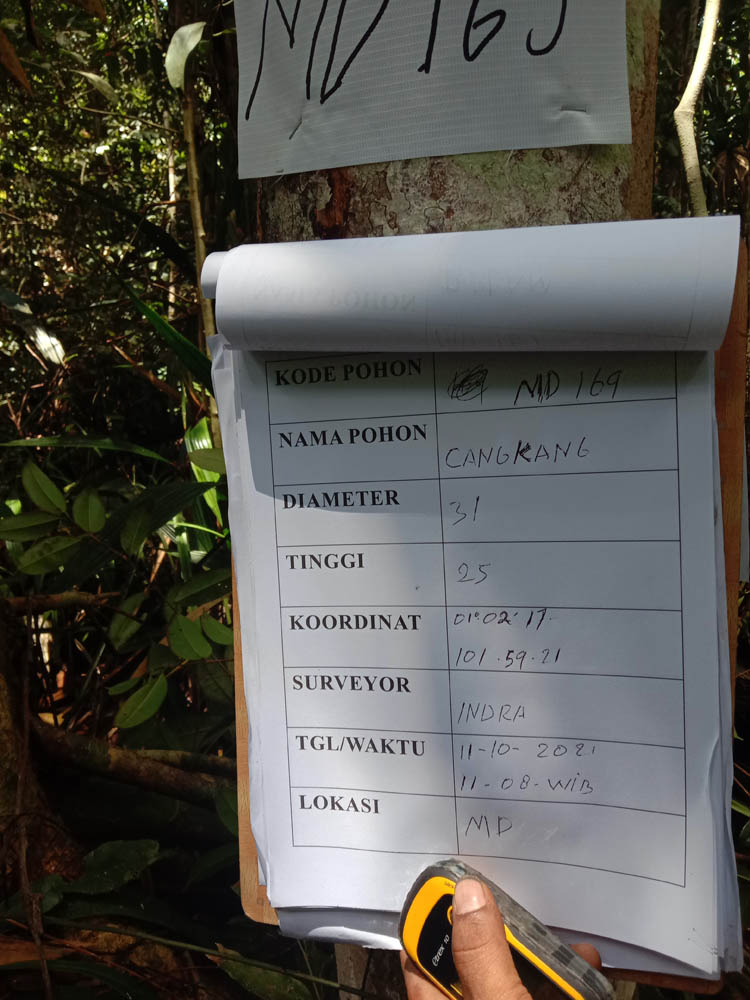 MD 169
KODE POHON MD 169
NAMA POHON CANGKANG
DIAMETER 31
TINGGI 25
KOORDINAT 01°02'17
101.59.21
SURVEYOR INDRA
TGL/WAKTU 11-10-2021
11-08-WIB
LOKASI MD
etrex 10